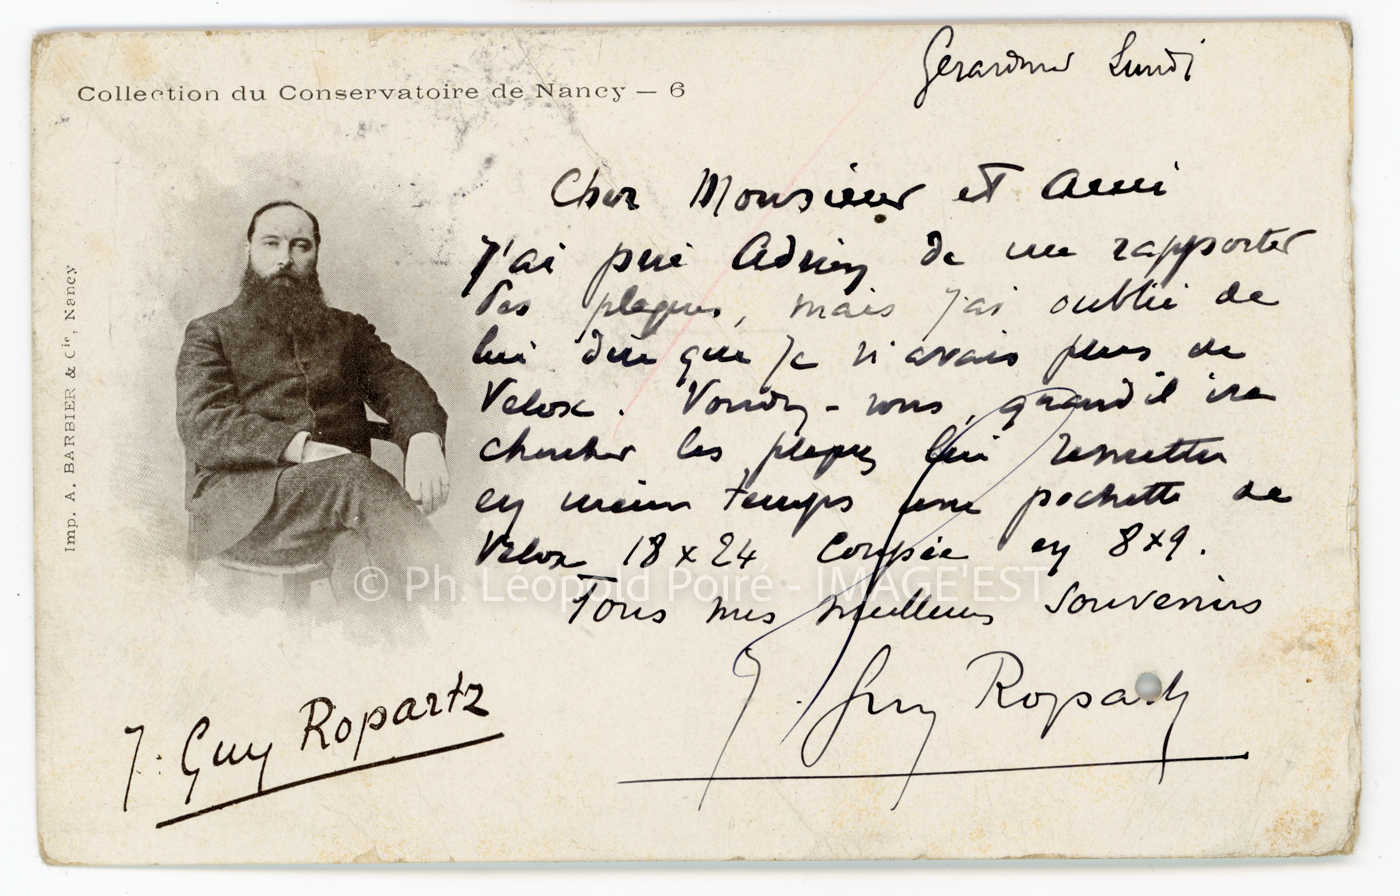 Collection du Conservatoire de Nancy — 6
Gérardmer Lundi
Cher Monsieur et Ami
J'ai prié Adrien de me rapporter
des plaques, mais j'ai oublié de
lui dire que je n'avais plus de
Velox. Voudrez-vous, quand il ira
chercher les plaques lui remettre
en même temps une pochette de
Velox 18x24 Coupée en 8x9.
Tous mes meilleurs Souvenirs
J. Guy Ropartz
J. Guy Ropartz
Imp. A. BARBIER & Cie, Nancy
© Ph. Léopold Poiré - IMAGE'EST